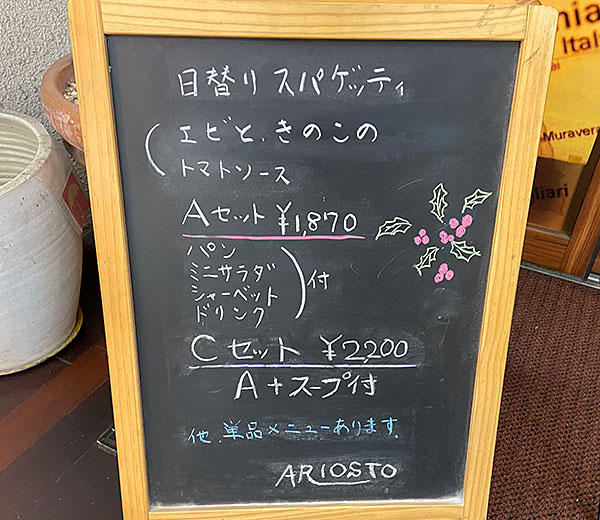 日替り スパゲッティ
エビと、きのこの
トマトソース
Aセット ¥1,870
パン
ミニサラダ
シャーベット
ドリンク
付
Cセット ¥2,200
A+スープ付
他、単品メニューあります。
ARIOSTO
Ital
Muravera
liari